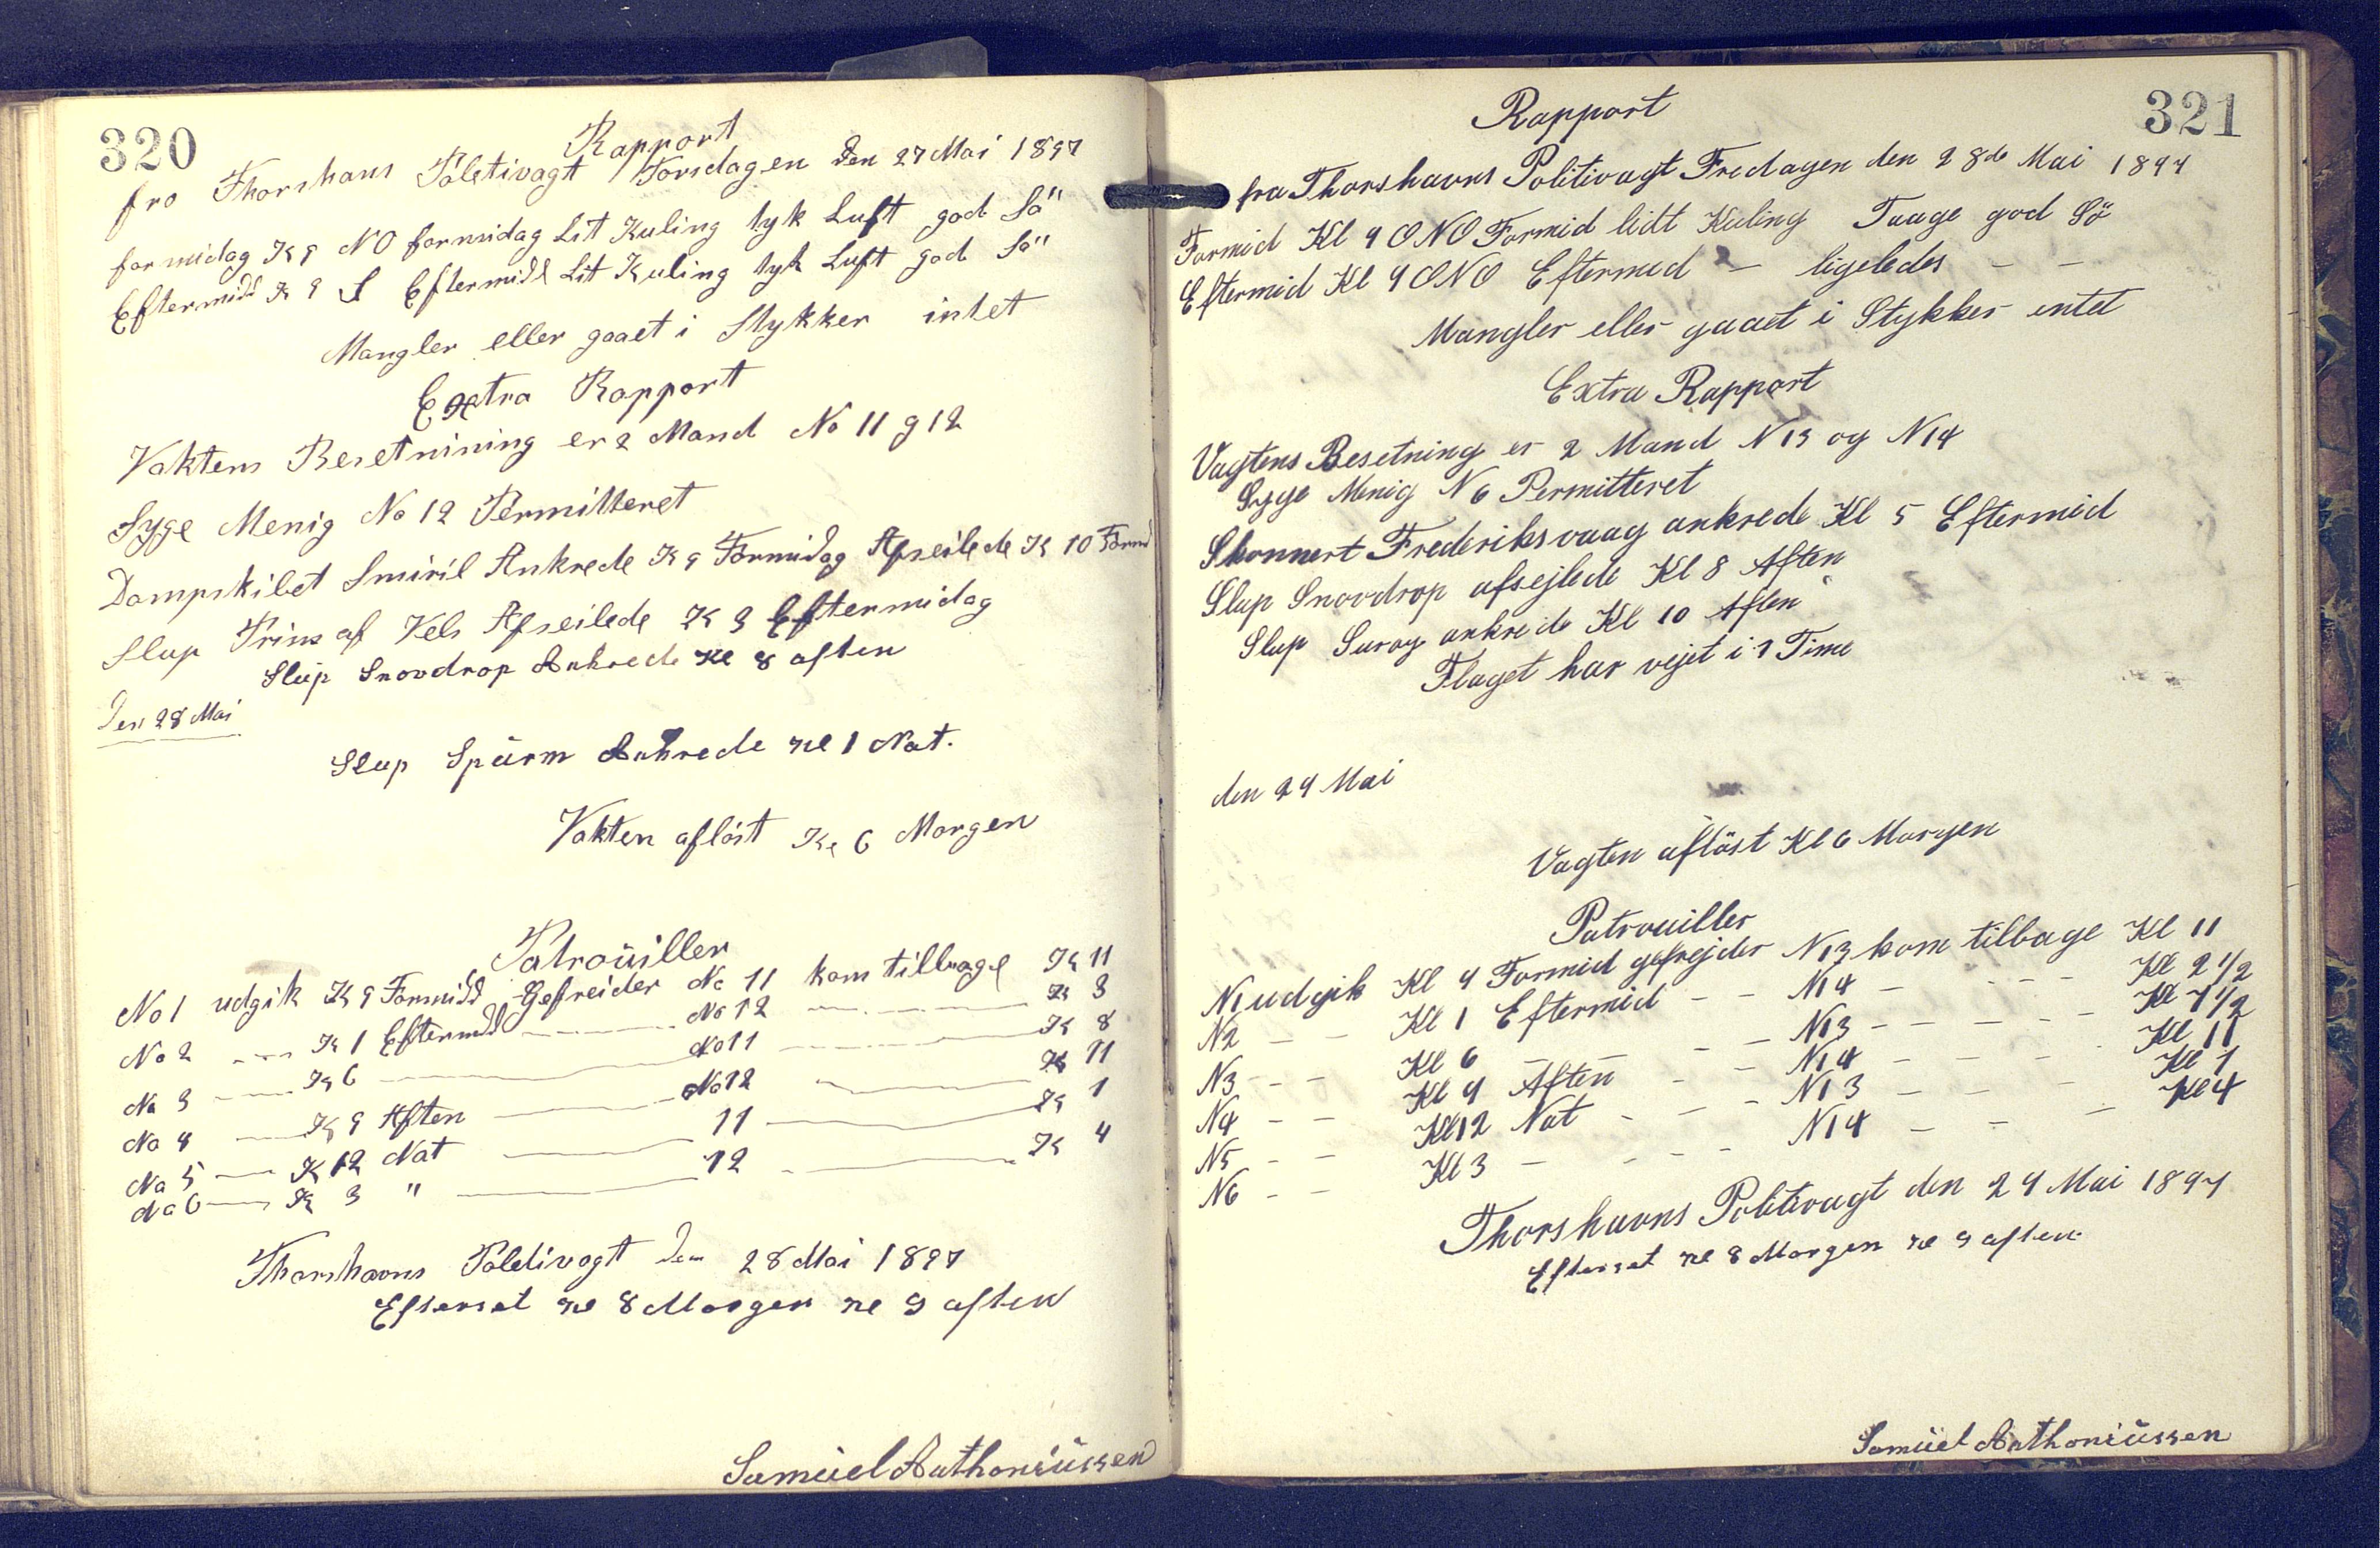 320
Rapport
fro Thorshavns Poletivagt Torsdagen Den 27 Mai 1897
formidag Kl 9 NO formidag Lit Kuling tyk Luft god Sö"
Eftermidd Kl 9 S Eftermidd Lit Kuling tyk Luft god Sö"
Mangler eller gaaet i Stykker intet
Extra Rapport
Vaktens Besetnining er 2 Mand No 11 g 12
Syge Menig No 12 Permitteret
Dampskibet Smiril Ankrede Kl 9 Formidag Afseilede Kl 10 Formd
Slup Prins af Vels Afseilede Kl 3 Eftermidag
Slup Snovdrop Ankrede Kl 8 aften
Den 28 Mai
Slup Spurm Ankrede Kl 1 Nat.
Vakten aflöst Kl 6 Morgen
Patrouiller
No 1 udgik Kl 9 Formidd Gefreider No 11 kom tilbage Kl 11
No 2 — Kl 1 Eftermidd — No 12 — Kl 3
No 3 — Kl 6 — No 11 — Kl 8
No 4 — Kl 9 Aften — No 12 — Kl 11
No 5 — Kl 12 Nat — 11 — Kl 1
No 6 — Kl 3 " — 12 — Kl 4
Thorshavns Poletivogt Den 28 Mai 1897
Efterset Kl 8 Morgen Kl 9 aften
Samuel Anthoniussen
321
Rapport
fra Thorshavns Politivagt Fredagen den 28de Mai 1897
Formid Kl 9 ONO Formid lidt Kuling Taage god Sö
Eftermid Kl 9 ONO Eftermid — ligeledes — —
Mangler eller gaaet i Stykker intet
Extra Rapport
Vagtens Besetning er 2 Mand N13 og N14
Syge Menig N6 Permitteret
Skonnert Frederiksvaag ankrede Kl 5 Eftermid
Slup Snovdrop afsejlede Kl 8 Aften
Slup Suroy ankrede Kl 10 Aften
Flaget har vejet i 1 Time
den 29 Mai
Vagten aflöst Kl 6 Morgen
Patrouiller
N1 udgik Kl 9 Formid gefrejder N13 kom tilbage Kl 11
N2 — — Kl 1 Eftermid — — N14 — — — Kl 2 1/2
N3 — — Kl 6 — — — — N13 — — — — Kl 7 1/2
N4 — — Kl 9 Aften — — N14 — — — Kl 11
N5 — — Kl 12 Nat — — — N13 — — — Kl 1
N6 — — Kl 3 — — — — N14 — — — Kl 4
Thorshavns Politivagt den 29 Mai 1897
Efterset Kl 8 Morgen Kl 9 aften
Samuel Anthoniussen